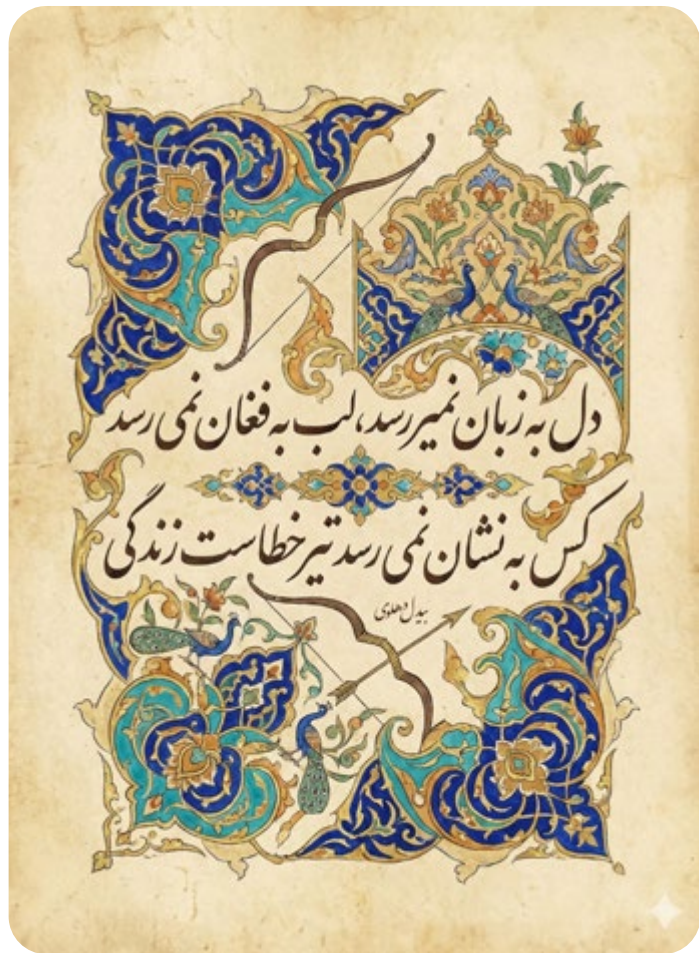 دل به زبان نمیرسد، لب به فغان نمی رسد
کس به نشان نمی رسد تیر خطاست زندگی
بیدل دهلوی